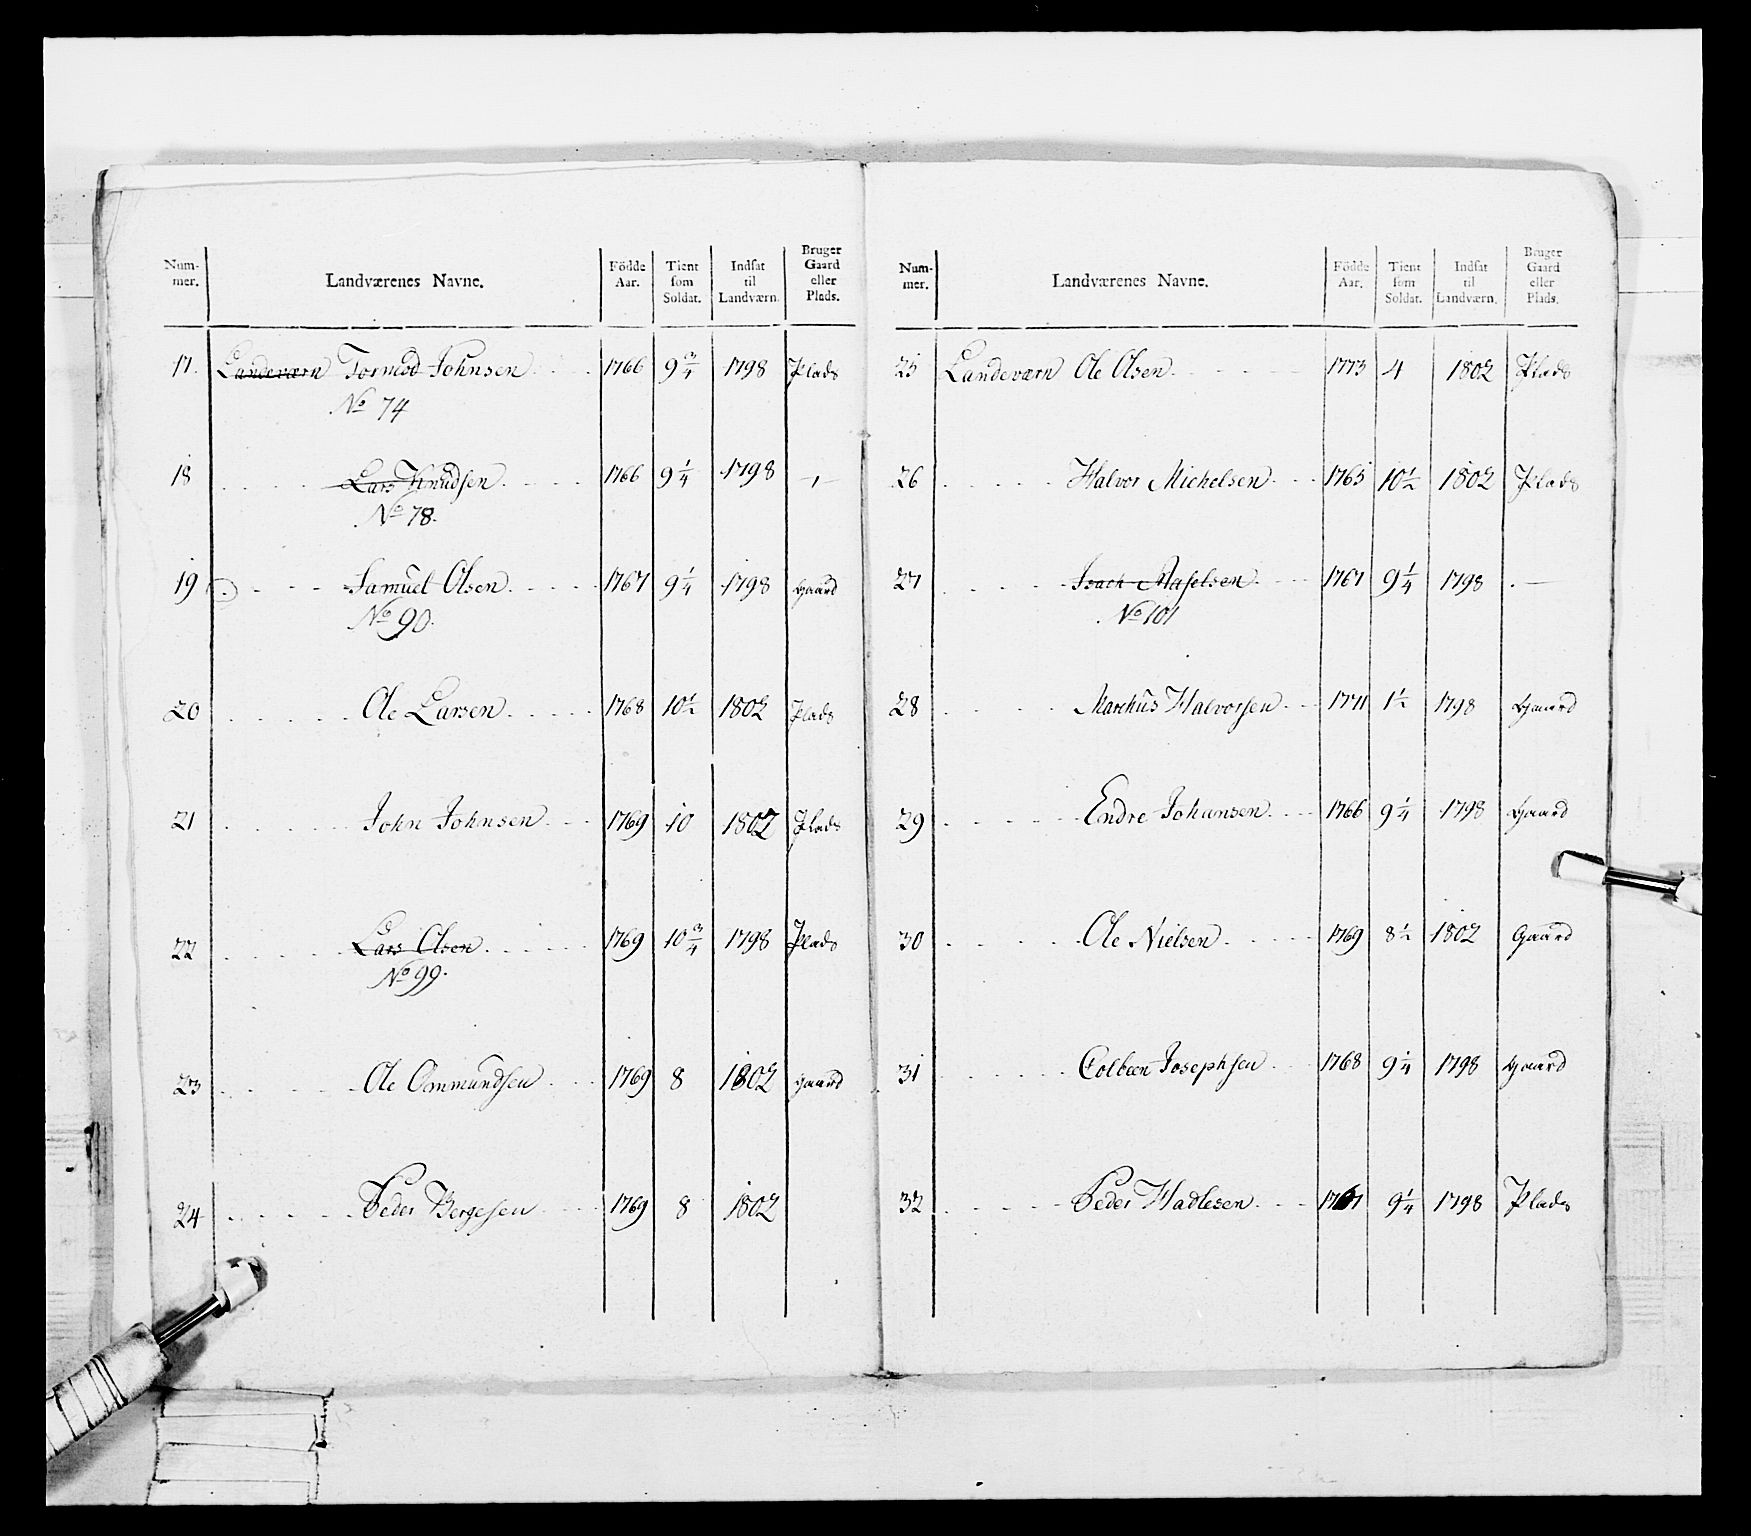 Num-
mer.
Landværenes Navne.
Födde
Aar.
Tient
som
Soldat.
Indsat
til
Landværn.
Bruger
Gaard
eller
Plads.
17. Landeværn Tormod Johnsen 1766 9 3/4 1798 Plads
No 74
18 Lars Knudsen 1766 9 1/4 1798 —"—
No 78.
19 Samuel Olsen 1767 9 1/4 1798 Gaard
No 90.
20 Ole Larsen 1768 10 1/2 1802 Plads
21 John Johnsen 1769 10 1802 Plads
22 Lars Olsen 1769 10 3/4 1798 Plads
No 99.
23 Ole Ommundsen 1769 8 1802 Gaard
24 Peder Bergesen 1769 8 1802
Num-
mer.
Landværenes Navne.
Födde
Aar.
Tient
som
Soldat.
Indsat
til
Landværn.
Bruger
Gaard
eller
Plads.
25 Landeværn Ole Olsen 1773 4 1802 Plads
26 Halvor Michelsen 1765 10 1/2 1802 Plads
27 Isach 1767 9 1/4 1798 —
No 101
28 Marchus Halvorsen 1771 1 1/2 1798 Gaard
29 Endre Johansen 1766 9 1/4 1798 Gaard
30 Ole Nielsen 1769 8 1/2 1802 Gaard
31 Colbeen Josephsen 1768 9 1/4 1798 Gaard
32 Peder Hadlesen 1767 9 1/4 1798 Plads